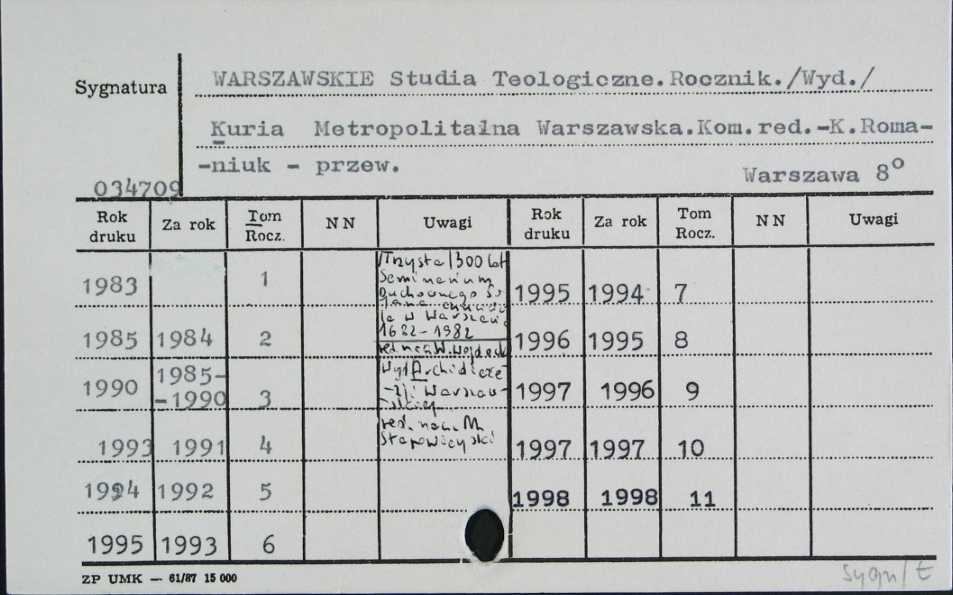 WARSZAWSKIE Studia Teologiczne.Rocznik./Wyd./
Sygnatura
Kuria Metropolitalna Warszawska.Kom.red.-K.Roma-
-niuk - przew.
Warszawa 8°
034709
Rok druku Za rok Tom Rocz. NN Uwagi Rok druku Za rok Tom Rocz. NN Uwagi
1983 1 1995 1994 7
1985 1984 2 1996 1995 8
1990 1985--1990 3 1997 1996 9
1993 1991 4 1997 1997 10
1994 1992 5 1998 1998 11
1995 1993 6
/Trzysta/300 lat
Seminarium
Duchownego
w Warszawie
1682-1982
red. nacz. W. Wojdecki
Wyd. Archidiecez
-ji Warszaw-
-skiej
red. nacz. M.
ZP UMK — 61/87 15 000
Sygn/t